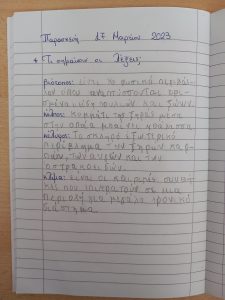 Παρασκευή 17 Μαρτίου 2023
Τι σημαίνουν οι λέξεις;
βιότοπος: είναι το φυσικό περιβάλ-
λον όπου αναπτύσσονται ορι-
σμένα είδη πουλιών και ζώων.
κόλπος: κομμάτι της ξηράς μέσα
στην οποία μπαίνει η θάλασσα
κέλυφος: Το σκληρό εξωτερικό
περίβλημα των ξηρών καρ-
πών, των αυγών και των
οστρακοειδών.
κλίμα: είναι οι καιρικές συνθή-
κες που επικρατούν σε μια
περιοχή για μεγάλο χρονικό
διάστημα.